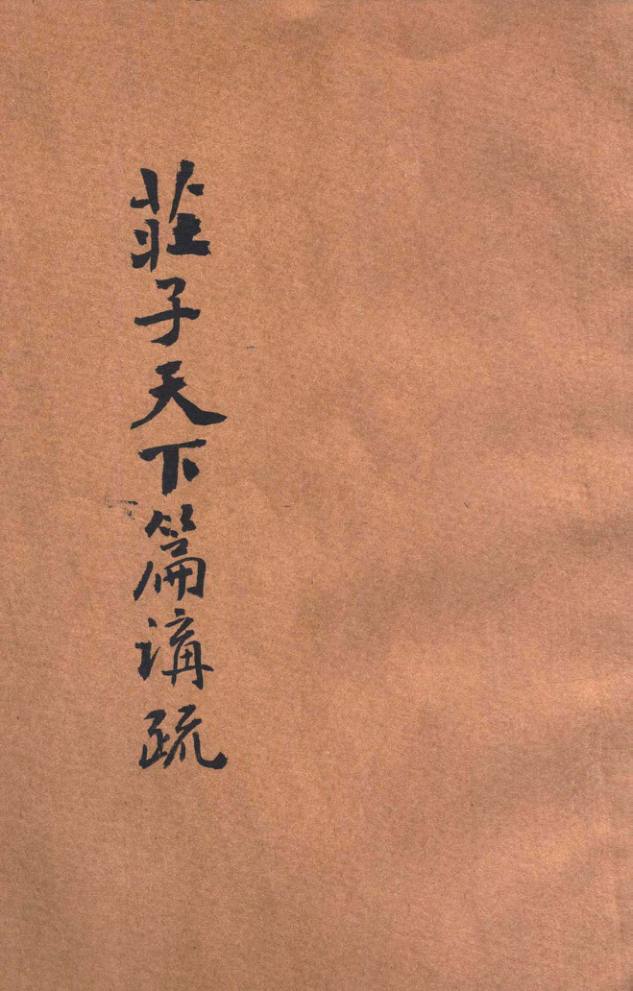 莊子天下篇講疏